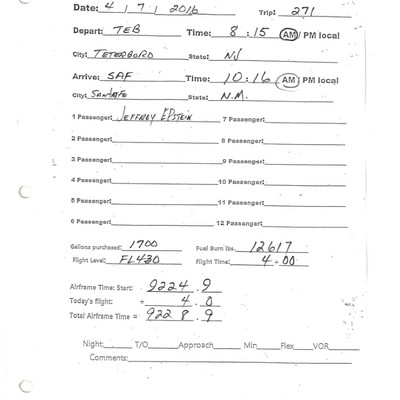 Date: 4 / 7 / 2016 Trip: 271
Depart: TEB Time: 8 : 15 AM / PM local
City: TETERBORO State: NJ
Arrive: SAF Time: 10 : 16 AM / PM local
City: SANTA FE State: N.M.
1 Passenger: JEFFREY EPSTEIN 7 Passenger:
2 Passenger: 8 Passenger:
3 Passenger: 9 Passenger:
4 Passenger: 10 Passenger:
5 Passenger: 11 Passenger:
6 Passenger: 12 Passenger:
Gallons purchased: 1700 Fuel Burn lbs. 12617
Flight Level: FL430 Flight Time: 4 + 00
Airframe Time: Start: 9224 . 9
Today's flight: + 4 . 0
Total Airframe Time = 9228 . 9
Night: T/O Approach Min Flex VOR
Comments: